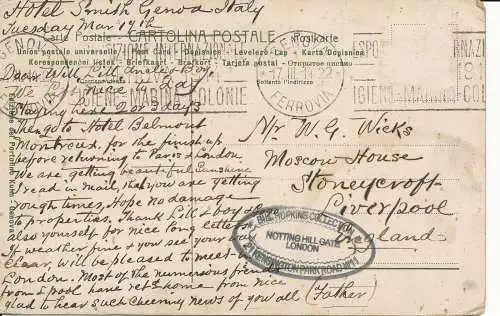 Hotel Smith Genoa Italy
Tuesday Mar 17th
Carte Postale CARTOLINA POSTALE Postkarte
Union postale universelle Post Card Dopisnice Levelezo Lap Karta Dopisnice
Korespondenční listek Briefkaart Brevkort Tarjeta postal Открытое письмо
GENOVA
FERROVIA
17.III.14.22
IGIENE MARINA COLONIE
IGIENE MARINA COL
Dear Will, Lill, Uncles & Boy,
We nice day
Staying here 2 or 3 days
Then go to Hotel Belmont
Montreux, for the finish up
before returning to Paris & London.
We are getting beautiful sunshine
I read in mail, that you are getting
rough times, Hope no damage
to properties. Thank Lill & boy &
also yourself for nice long letter
If weather fine & you see your way
clear, will be pleased to meet
London. Most of the numerous friends
from L'pool have retd home from Nice
glad to hear such cheering news of you all (Father)
Mr W. G. Wicks
Moscow House
Stoneycroft
Liverpool
England
THE HOPKINS COLLECTION
NOTTING HILL GATE
LONDON
KENSINGTON PARK ROAD W11